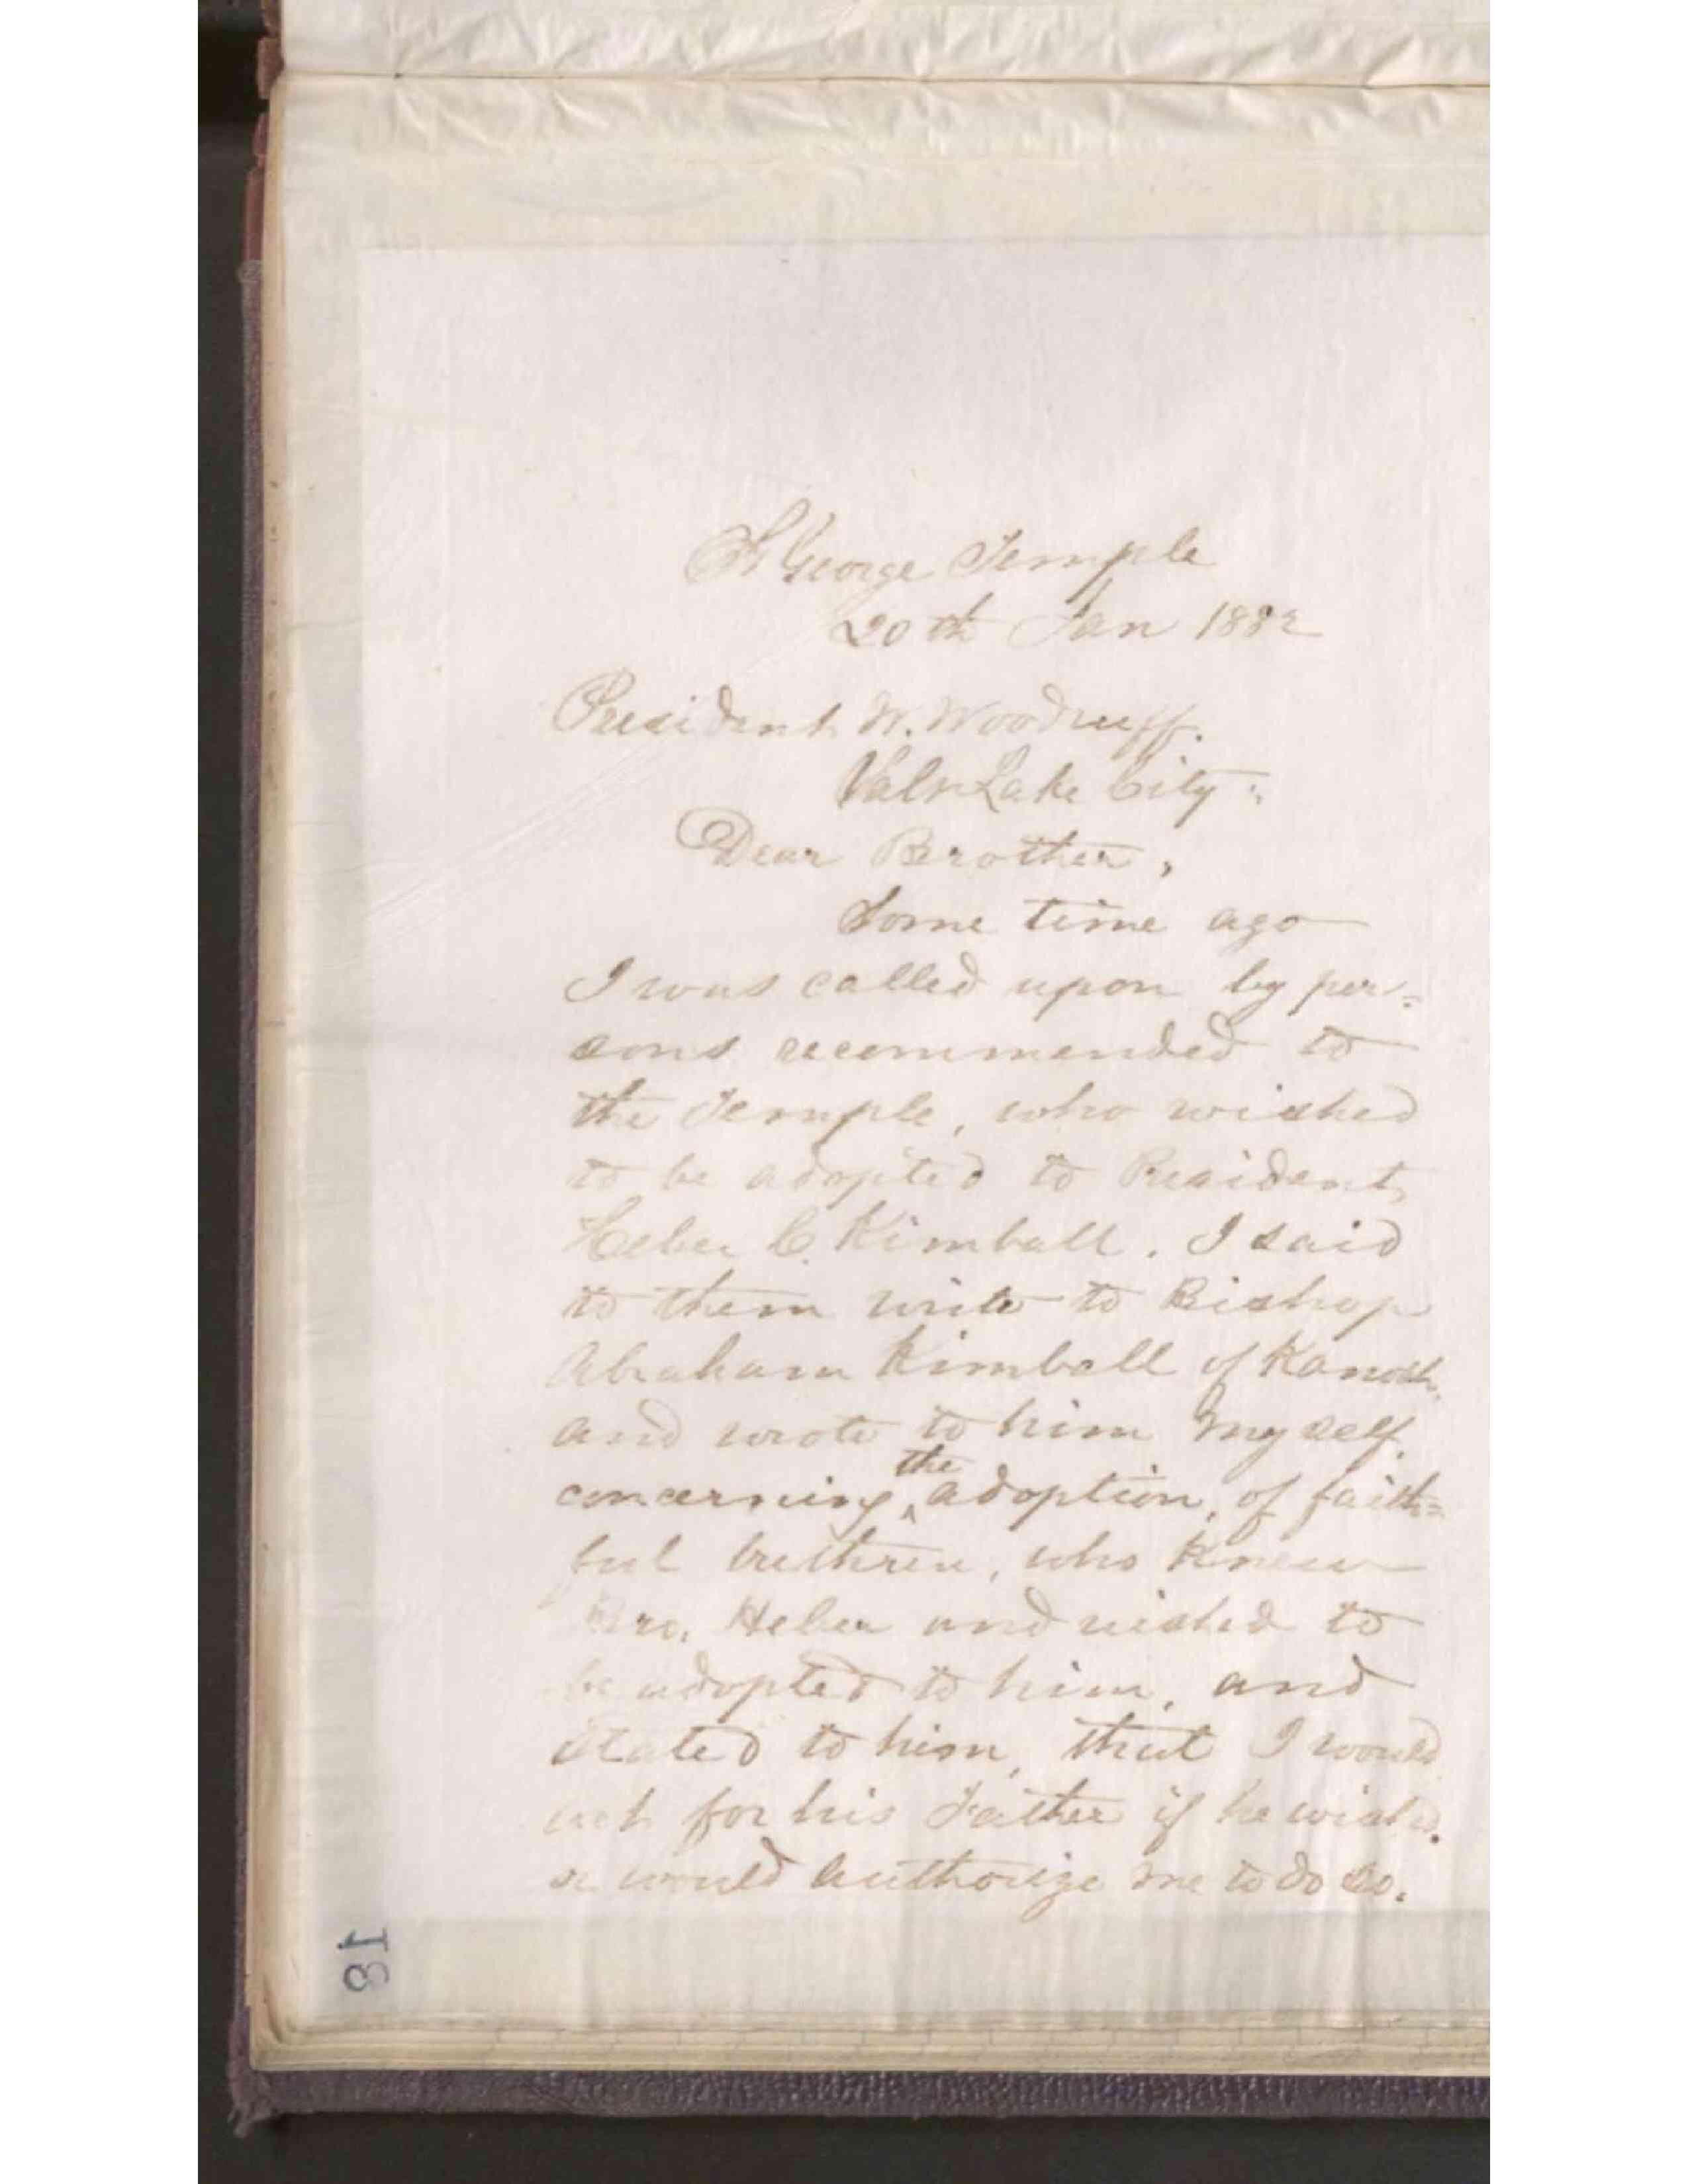 St George Temple
20th Jan 1882
President W. Woodruff.
Salt Lake City:
Dear Brother,
Some time ago
I was called upon by per=
sons recommended to
the Temple, who wished
to be adopted to President
Heber C. Kimball. I said
to them write to Bishop
Abraham Kimball of Kanosh,
and wrote to him myself
the
concerning ^ adoption, of faith=
ful brethren, who knew
Bro. Heber and wished to
be adopted to him, and
stated to him, that I would
act for his Father if he wished
or would authorize me to do so.
18